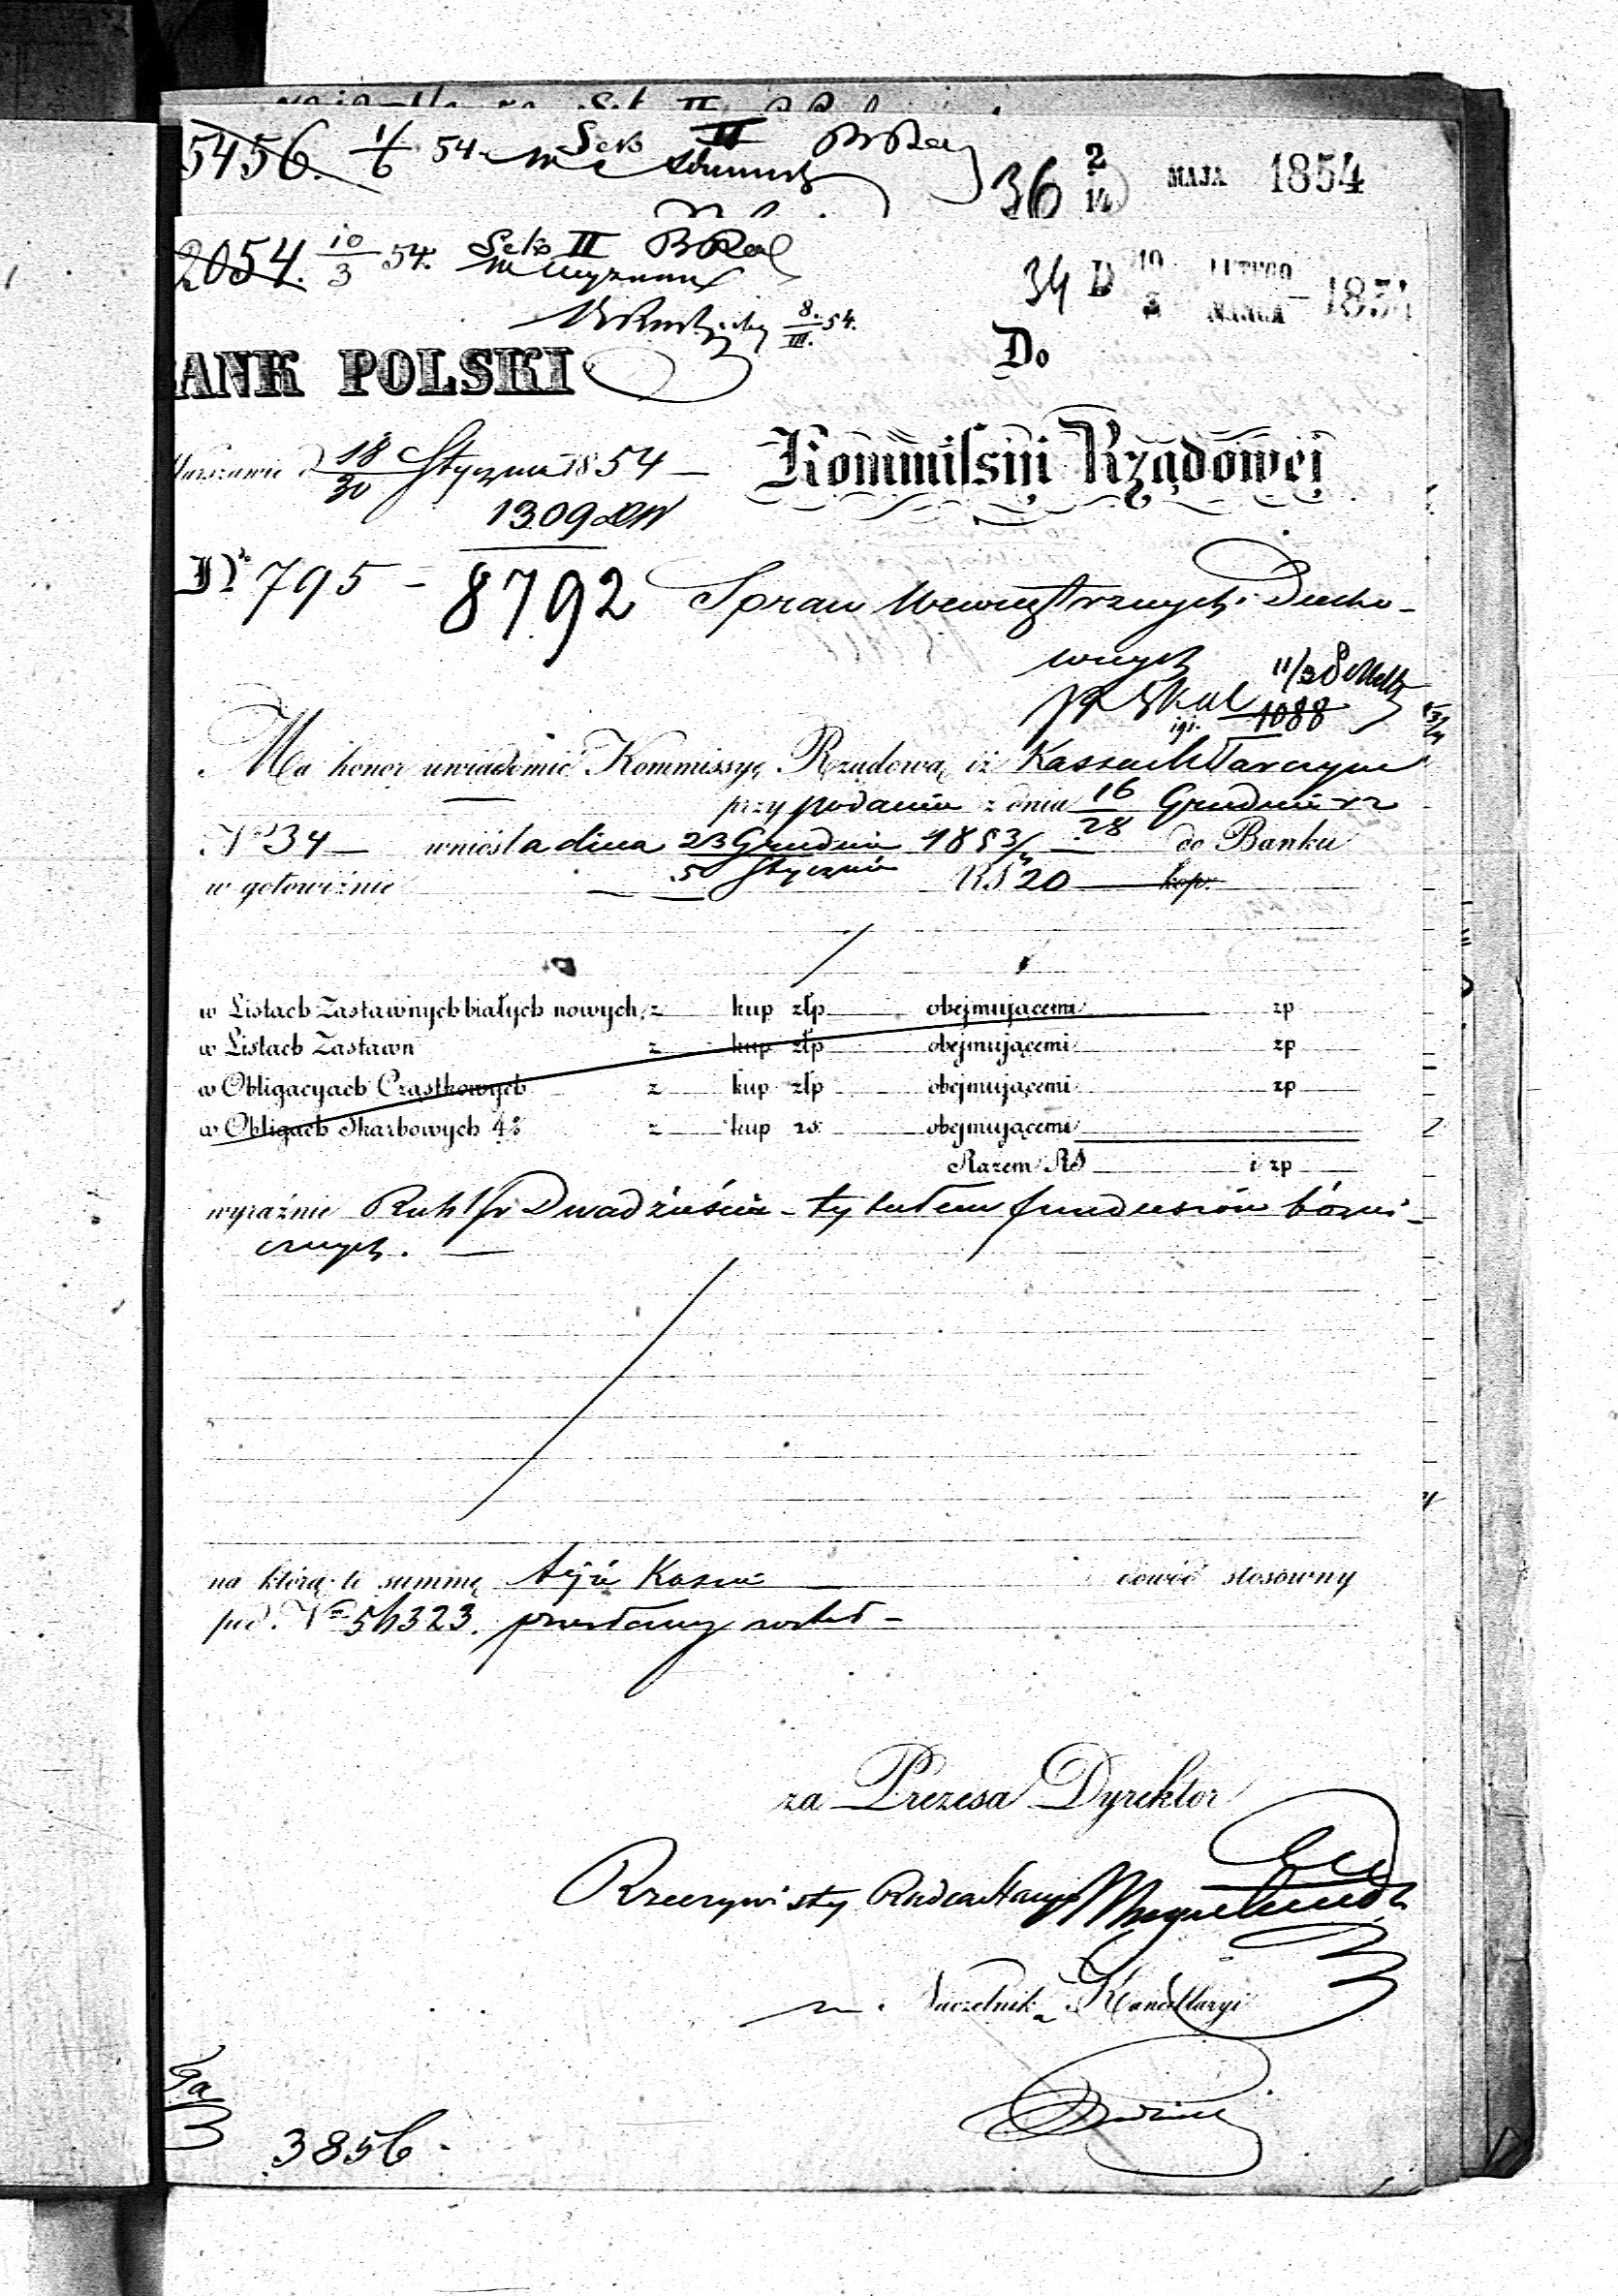 5456. 1/6 54. Sek II
36 2/14 MAJA 1854
2054. 10/3 54. Sek II
34 D 19 LUTEGO 3 MARCA 1854
8./III. 54.
BANK POLSKI
Do
Warszawie d 18/30 Stycznia 1854
Kommissyi Rządowej
1309
N° 795 — 8792
Spraw Wewnętrznych i Ducho-
wnych
11/3
1088
Ma honor uwiadomić Kommissyę Rządową iż Kassa M Tarczyna
przy podaniu z dnia 16/28 Grudnia
N° 34 — wniosła dnia 23 Grudnia 1853/4 do Banku
w gotowiźnie 5 Stycznia RS 20 — kop.
w Listach Zastawnych białych nowych z kup złp obejmującemi zp
w Listach Zastawn z kup złp obejmującemi zp
w Obligacyach Cząstkowych z kup złp obejmującemi zp
w Obligach Skarbowych 4% z kup rs. obejmującemi
Razem RS i zp
wyraźnie Rub Sr Dwadzieścia — tytułem funduszów bóżni-
cznych. —
na którą to summę tejże Kassie dowód stosowny
pod. N° 56323. przesłany został —
za Prezesa Dyrektor
Rzeczywisty Radca Stanu
Naczelnik Kancellaryi
3856.